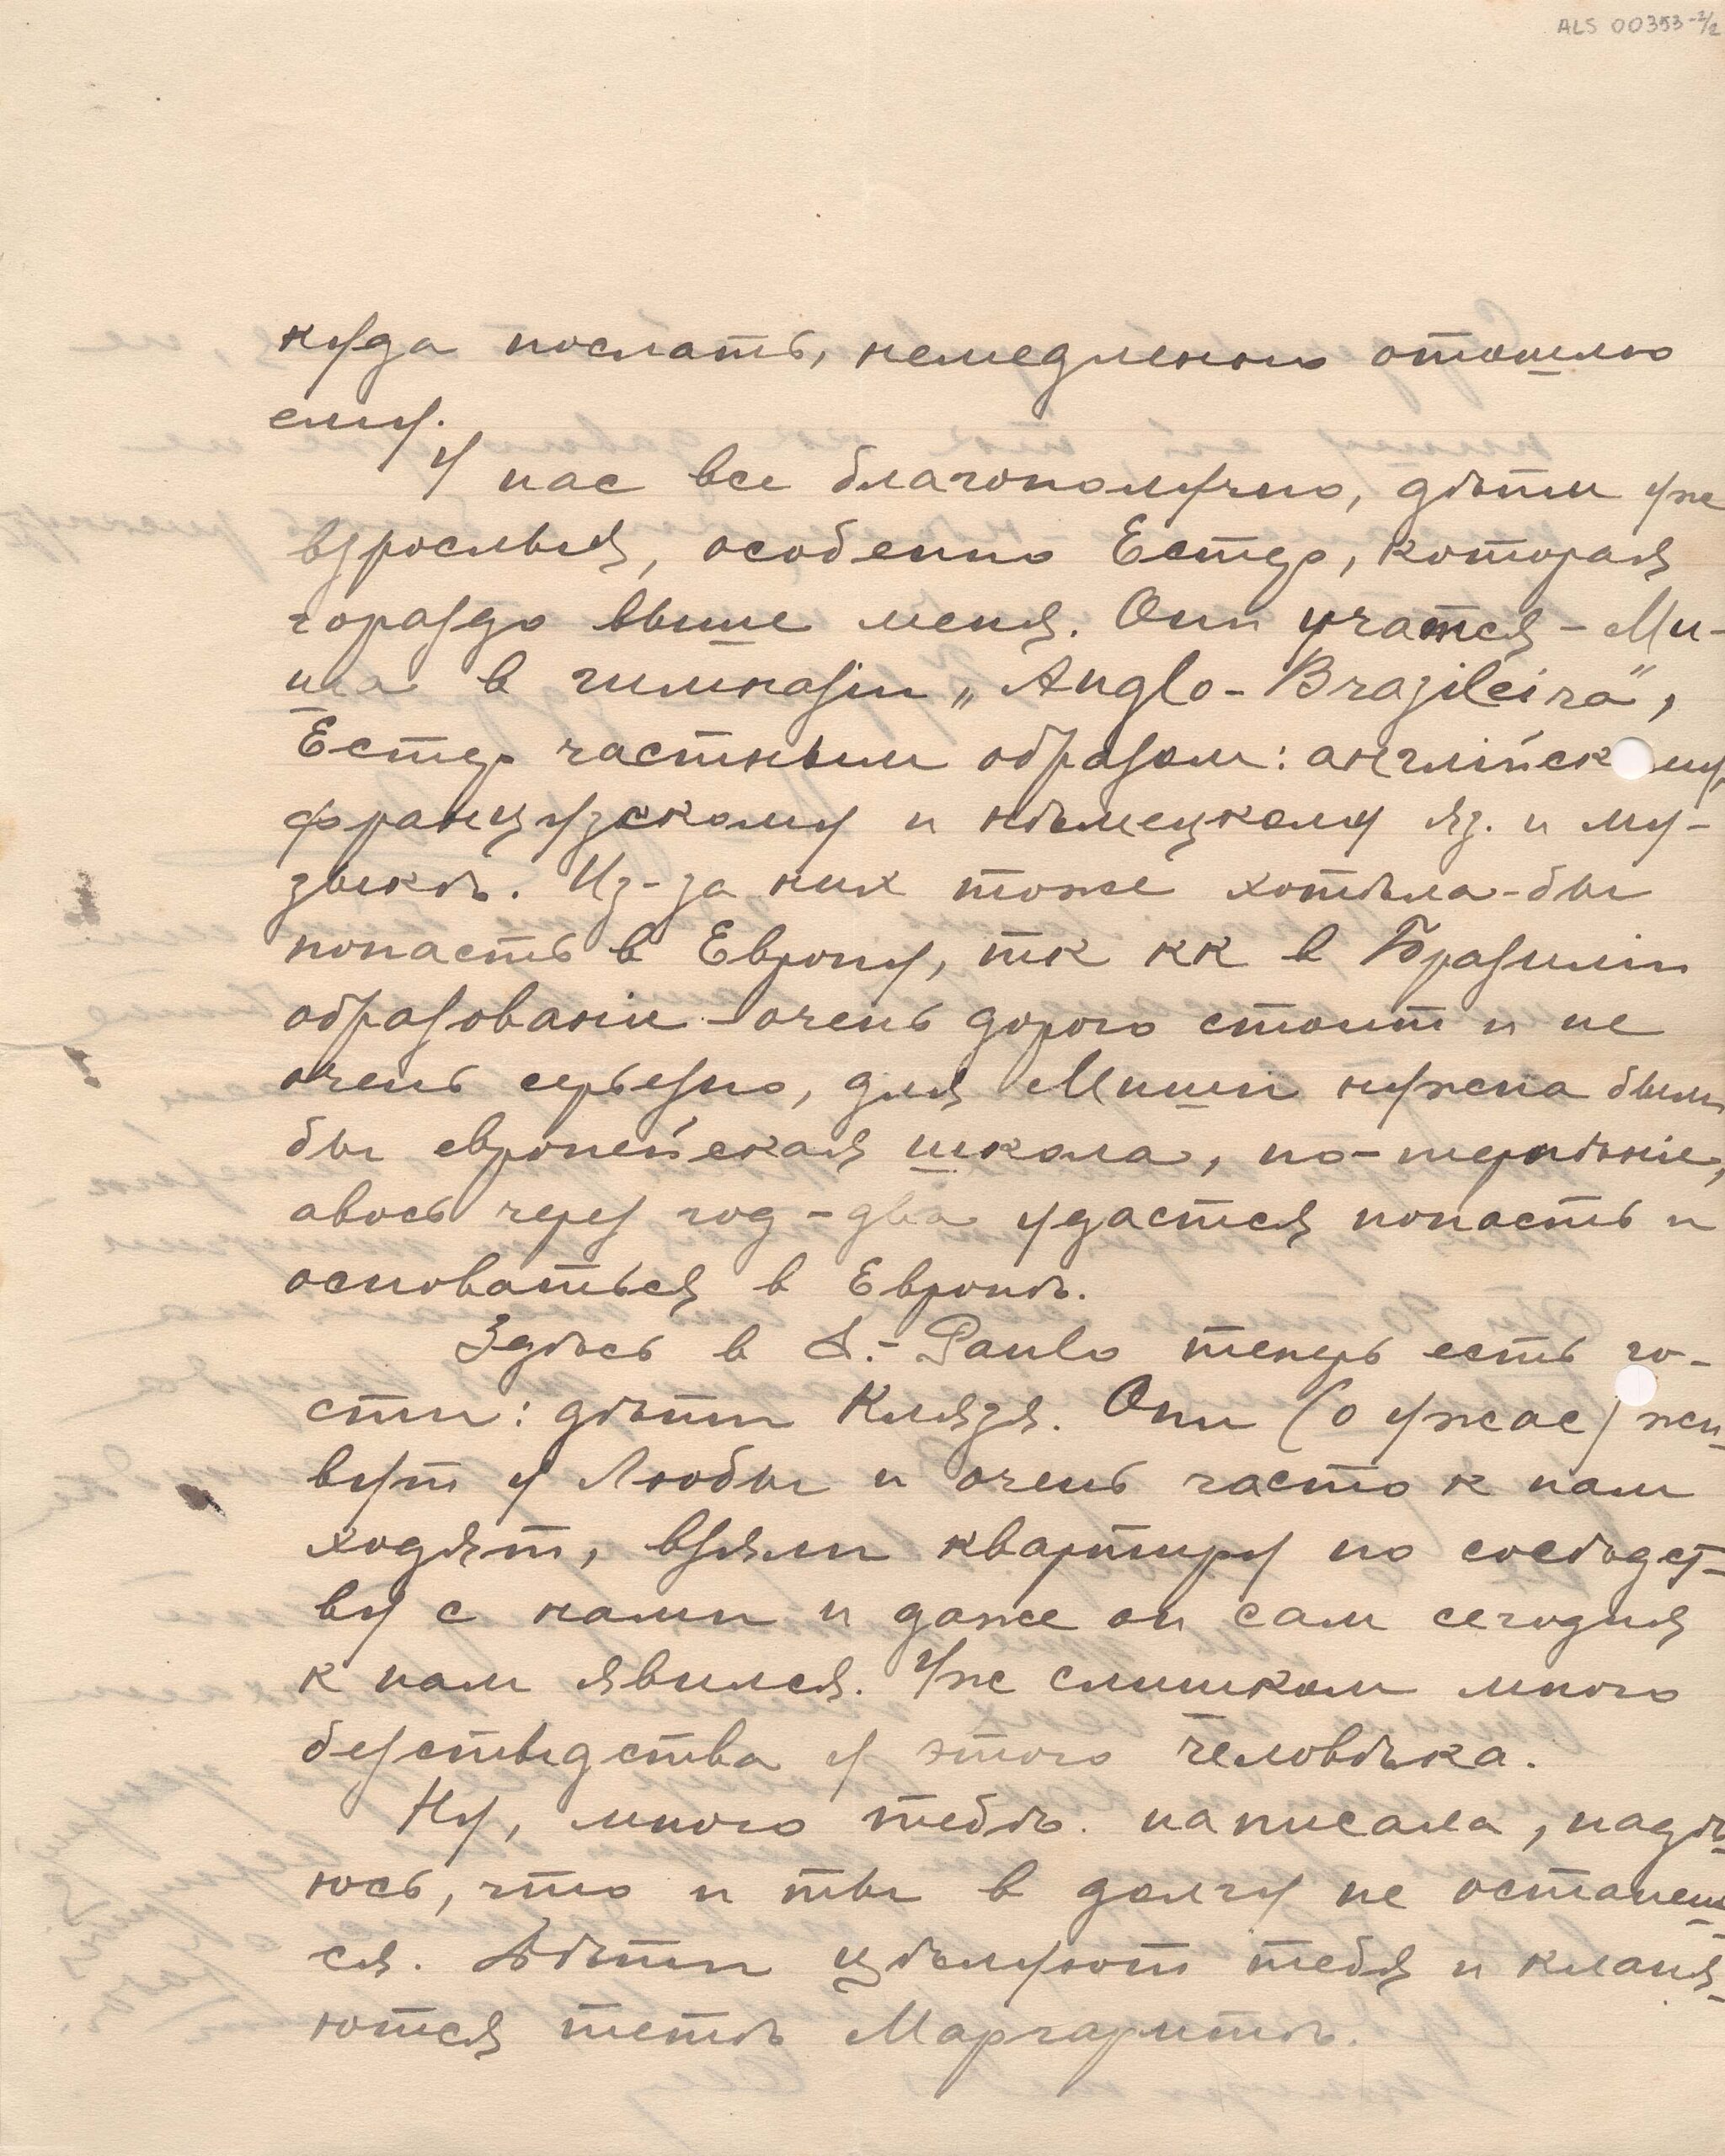 ALS 00353-2/2
куда послать, немедленно отошлю
ему.
У нас все благополучно, дѣти уже
взрослыя, особенно Естер, которая
гораздо выше меня. Они учатся - Ми-
ша в гимназіи „Anglo-Brazileira",
Естер частным образом: англійскому,
французскому и нѣмецкому яз. и му-
зыкѣ. Из-за них тоже хотѣла-бы
попасть в Европу, тк кк в Бразиліи
образованіе - очень дорого стоит и не
очень серьезно, для Миши нужна была
бы европейская школа, но - терпѣніе,
авось через год - два удастся попасть и
основаться в Европѣ.
Здѣсь в S.-Paulo теперь есть го-
сти: дѣти Князя. Они (о ужас) жи-
вут у Любы и очень часто к нам
ходят, взяли квартиру по сосѣдст-
ву с нами и даже он сам сегодня
к нам явился. Уж слишком много
безстыдства у этого человѣка.
Ну, много тебѣ написала, надѣ-
юсь, что и ты в долгу не останеш-
ся. Дѣти цѣлуют тебя и кланя-
ются тетѣ Маргаритѣ.